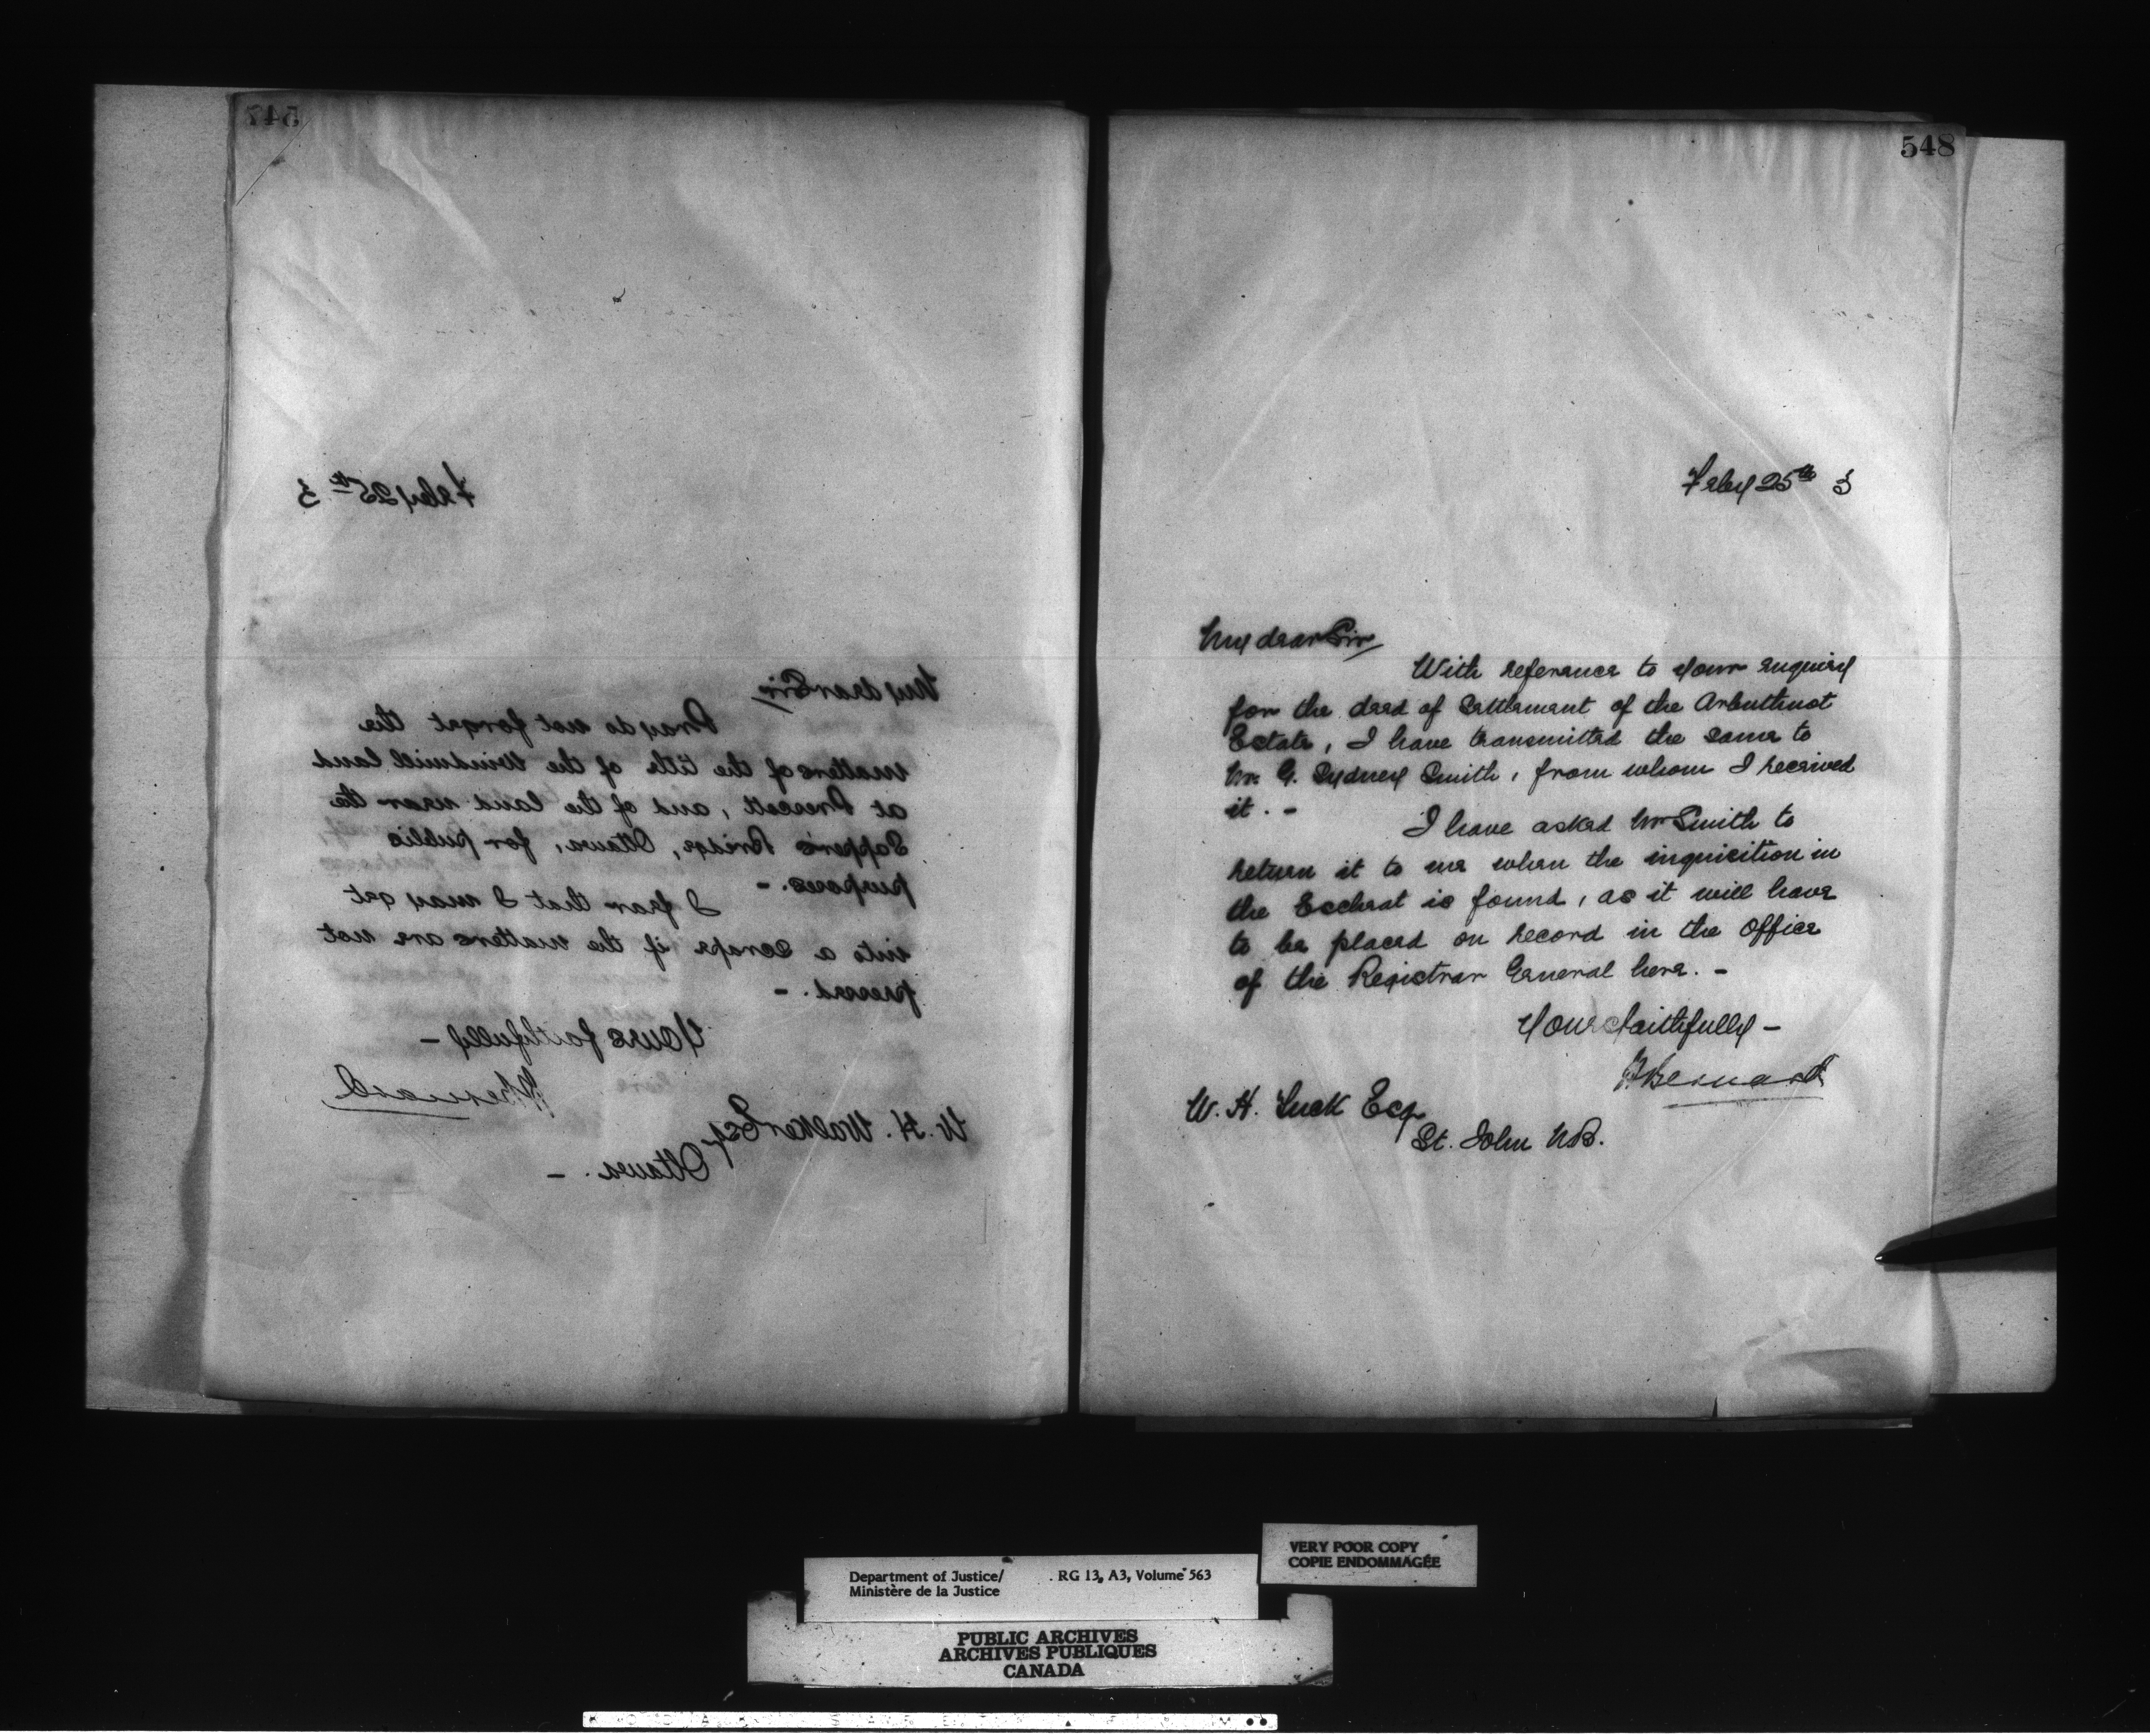 547
Feby 25th 3
My dear Sir
Pray do not forget the
matters of the title of the Windmill land
at Prescott, and of the land near the
Sappers Bridge, Ottawa, for public
purposes. -
I fear that I may get
into a scrape if the matters are not
pressed. -
Yours faithfully -
H Bernard
W. H. Walker Esq
Ottawa. -
548
Feby 25th 3
My dear Sir
With reference to your enquiry
for the deed of Settlement of the Arbuthnot
Estate, I have transmitted the same to
Mr. G. Sydney Smith, from whom I received
it. -
I have asked Mr Smith to
return it to me when the inquisition in
the Escheat is found, as it will have
to be placed on record in the Office
of the Registrar General here. -
Yours faithfully -
H Bernard
W. H. Tuck Esq
St. John N.B.
VERY POOR COPY
COPIE ENDOMMAGÉE
Department of Justice/ RG 13, A3, Volume 563
Ministère de la Justice
PUBLIC ARCHIVES
ARCHIVES PUBLIQUES
CANADA